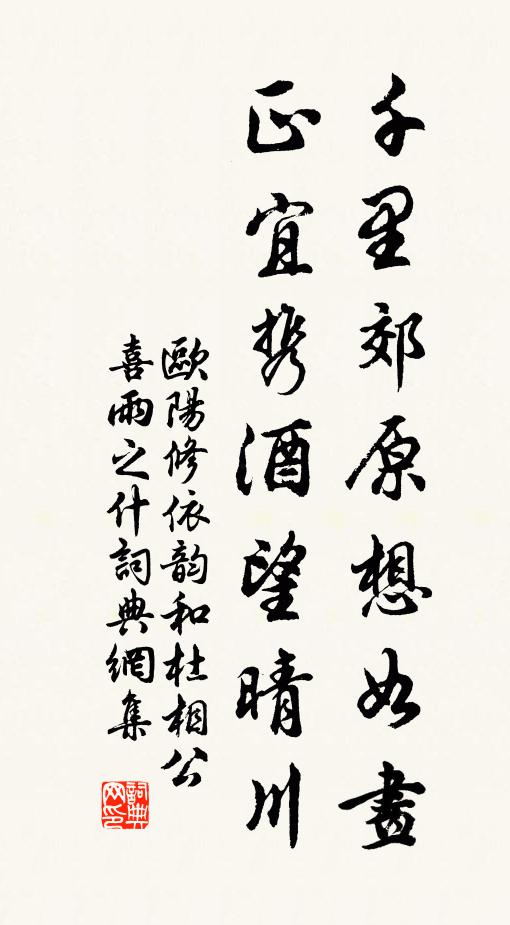 千里郊原想如畫
正宜携酒望晴川
歐陽修依韵和杜相公
喜雨之什詞典網集
詞典
网印